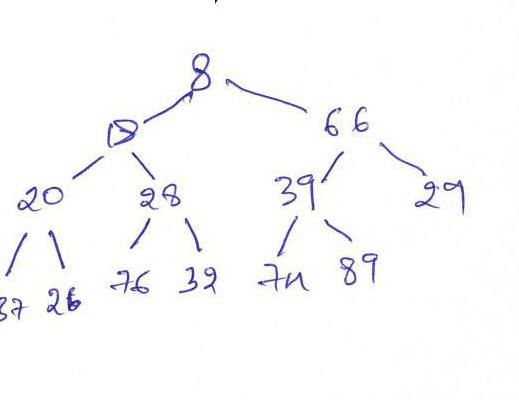 8
18 66
20 28 39 29
37 26 76 32 74 89